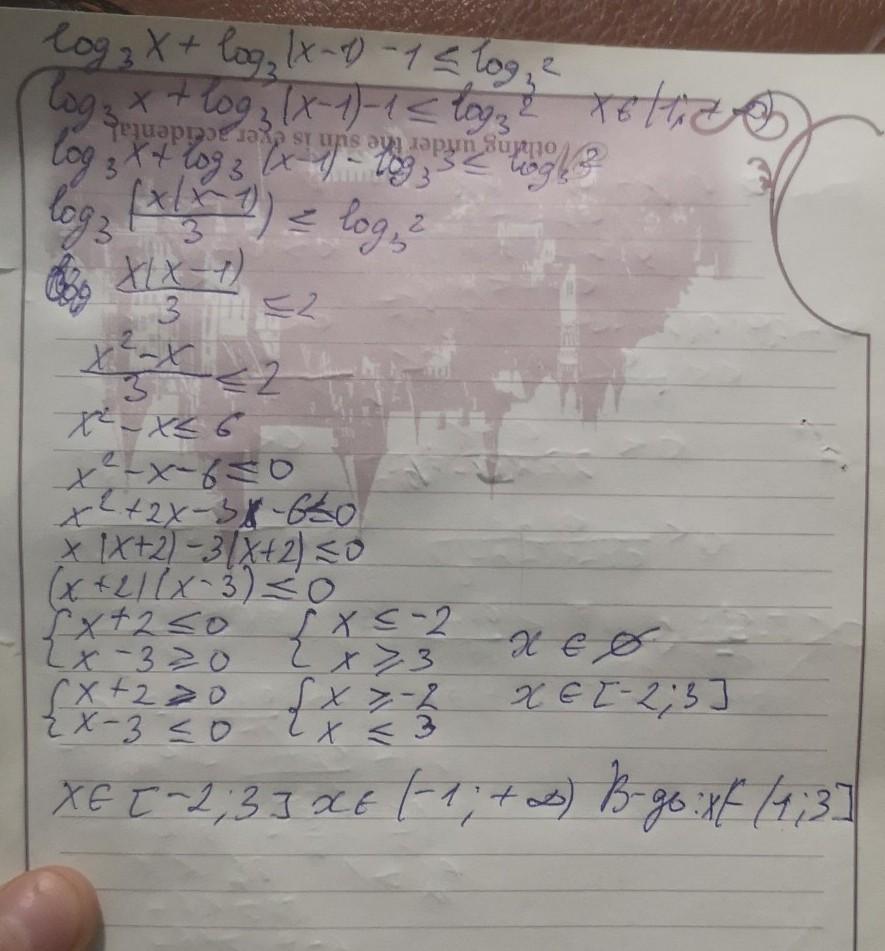 log₃ x + log₃ (x-1) - 1 ≤ log₃ 2
log₃ x + log₃ (x-1) - 1 ≤ log₃ 2 x ∈ (1; + ∞)
othing under the sun is ever accidental
log₃ x + log₃ (x-1) - log₃ 3 ≤ log₃ 2
log₃ (x(x-1)/3) ≤ log₃ 2
x(x-1)/3 ≤ 2
x²-x/3 ≤ 2
x² - x ≤ 6
x² - x - 6 ≤ 0
x² + 2x - 3x - 6 ≤ 0
x (x+2) - 3(x+2) ≤ 0
(x+2)(x-3) ≤ 0
{ x+2 ≤ 0 { x ≤ -2
{ x-3 ≥ 0 { x ≥ 3 x ∈ ∅
{ x+2 ≥ 0 { x ≥ -2 x ∈ [-2; 3]
{ x-3 ≤ 0 { x ≤ 3
x ∈ [-2; 3] x ∈ (-1; + ∞) В-дь: x ∈ (1; 3]